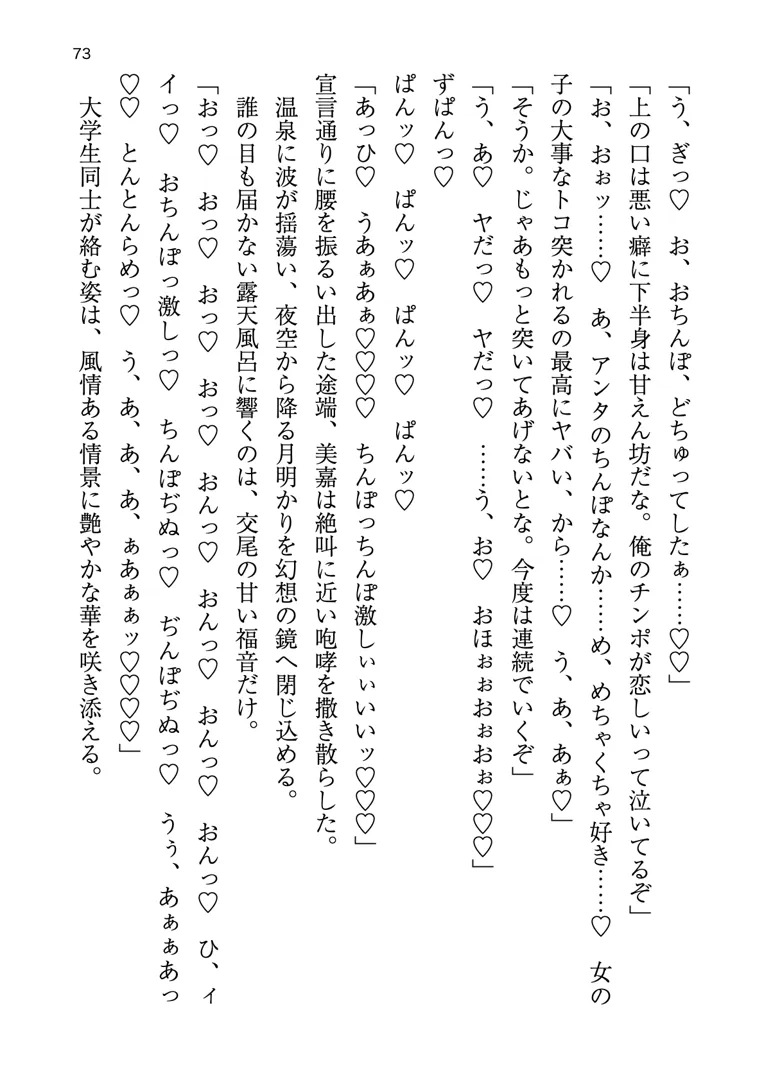 73
「う、ぎっ♡　お、おちんぽ、どちゅってしたぁ……♡♡」
「上の口は悪い癖に下半身は甘えん坊だな。俺のチンポが恋しいって泣いてるぞ」
「お、おぉッ……♡　あ、アンタのちんぽなんか……め、めちゃくちゃ好き……♡　女の
子の大事なトコ突かれるの最高にヤバい、から……♡　う、あ、あぁ♡」
「そうか。じゃあもっと突いてあげないとな。今度は連続でいくぞ」
「う、あ♡　ヤだっ♡　ヤだっ♡　……う、お♡　おほぉぉおぉおぉ♡♡♡」
ずぱんっ♡
ぱんッ♡　ぱんッ♡　ぱんッ♡　ぱんッ♡
「あっひ♡　うあぁあぁ♡♡♡♡　ちんぽっちんぽ激しぃぃいいッ♡♡♡」
宣言通りに腰を振るい出した途端、美嘉は絶叫に近い咆哮を撒き散らした。
温泉に波が揺蕩い、夜空から降る月明かりを幻想の鏡へ閉じ込める。
誰の目も届かない露天風呂に響くのは、交尾の甘い福音だけ。
「おっ♡　おっ♡　おっ♡　おっ♡　おんっ♡　おんっ♡　おんっ♡　おんっ♡　ひ、ィ
イっ♡　おちんぽっ激しっ♡　ちんぽぢぬっ♡　ぢんぽぢぬっ♡　うぅ、あぁぁあっ
♡♡　とんとんらめっ♡　う、あ、あ、あ、ぁあぁぁッ♡♡♡♡」
大学生同士が絡む姿は、風情ある情景に艶やかな華を咲き添える。